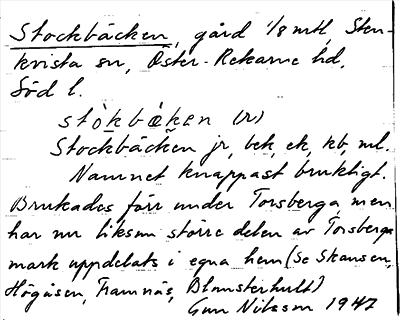 Stockbäcken, gård 1/8 mtl, Sten-
kvista sn, Öster-Rekarne hd,
Söd l.
stòkbä̀ken (n)
Stockbäcken jr, bek, ek, kb, ml.
Namnet knappast brukligt.
Brukades förr under Torsberga men
har nu liksom större delen av Torsberga
mark uppdelats i egna hem (se Skansen,
Högåsen, Framnäs, Blomsterhult)
Gun Nilsson 1947